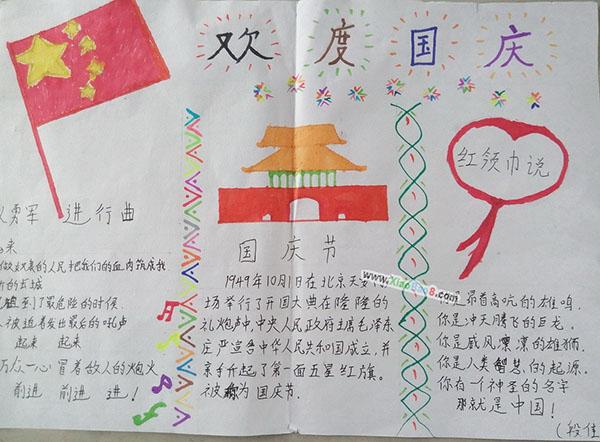 欢度国庆
义勇军 进行曲
来
做奴隶的人民把我们的血肉筑成我
的长城
到了最危险的时候
被迫着发出最后的吼声
起来 起来
万众一心 冒着敌人的炮火
前进 前进 进!
国庆节
1949年10月1日在北京天安门
场举行了开国大典在隆隆的
礼炮声中,中央人民政府主席毛泽东
庄严宣告中华人民共和国成立,并
亲手升起了第一面五星红旗。
被称为国庆节.
红领巾说
是昂首高吭的雄鸡.
你是冲天腾飞的巨龙.
你是威风凛凛的雄狮.
你是人类智慧的起源.
你有一个神圣的名字
那就是中国!
(段佳
www.XiaoBao8.com